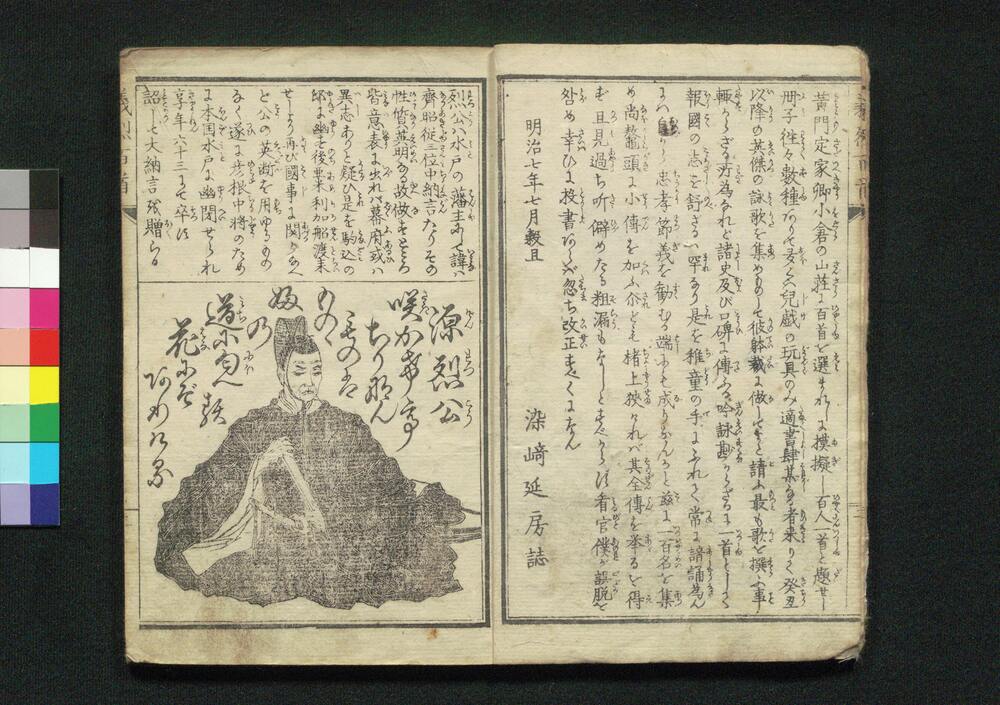 黄門定家卿小倉の山荘に百首を選まれしに摸擬し百人一首と題せし
冊子往々数種ありて多くハ児戯の玩具のみ適書肆某なる者来りて癸丑
以降の英傑の詠歌を集めものして彼躰裁に做してよと請ふ最も歌を撰ふ事
輙からざる所為なれど諸史及び口碑に傳ふる吟詠勘からざるに一首としく
報國の志を舒さるハ罕なり是を稚童の手にふれさて常に諳誦為ん
にハ自から忠孝節義を勧むる端ともなりなんかと茲に一百名を集
め尚鼇頭に小傳を加ふ尒ども楮上狭けれバ其全傳を挙るを得
ず且見過ち听僻めたる粗漏もなしとすべからず看官僕が誤脱を
咎め幸ひに投書あらバ忽ち改正すべくになん
明治七年七月穀旦
染﨑延房誌
烈公ハ水戸の藩主にて諱ハ
齊昭従三位中納言たりその
性質英明なる故做すところ
皆意表に出れバ幕府或ハ
異志ありと疑ひ是を駒込の
邸に幽す後亜米利加船渡来
せしより再び國事に関かるへ
ど公の英断を用ゆるもの
なく遂に彦根中将のため
に本国水戸に幽閉せられ
享年六十三にて卒す
詔して大納言を贈らる
源烈公
咲かけて
ちりなん
ものは
ものゝ
婦の
道に匂へ類
花にぞ
ありける